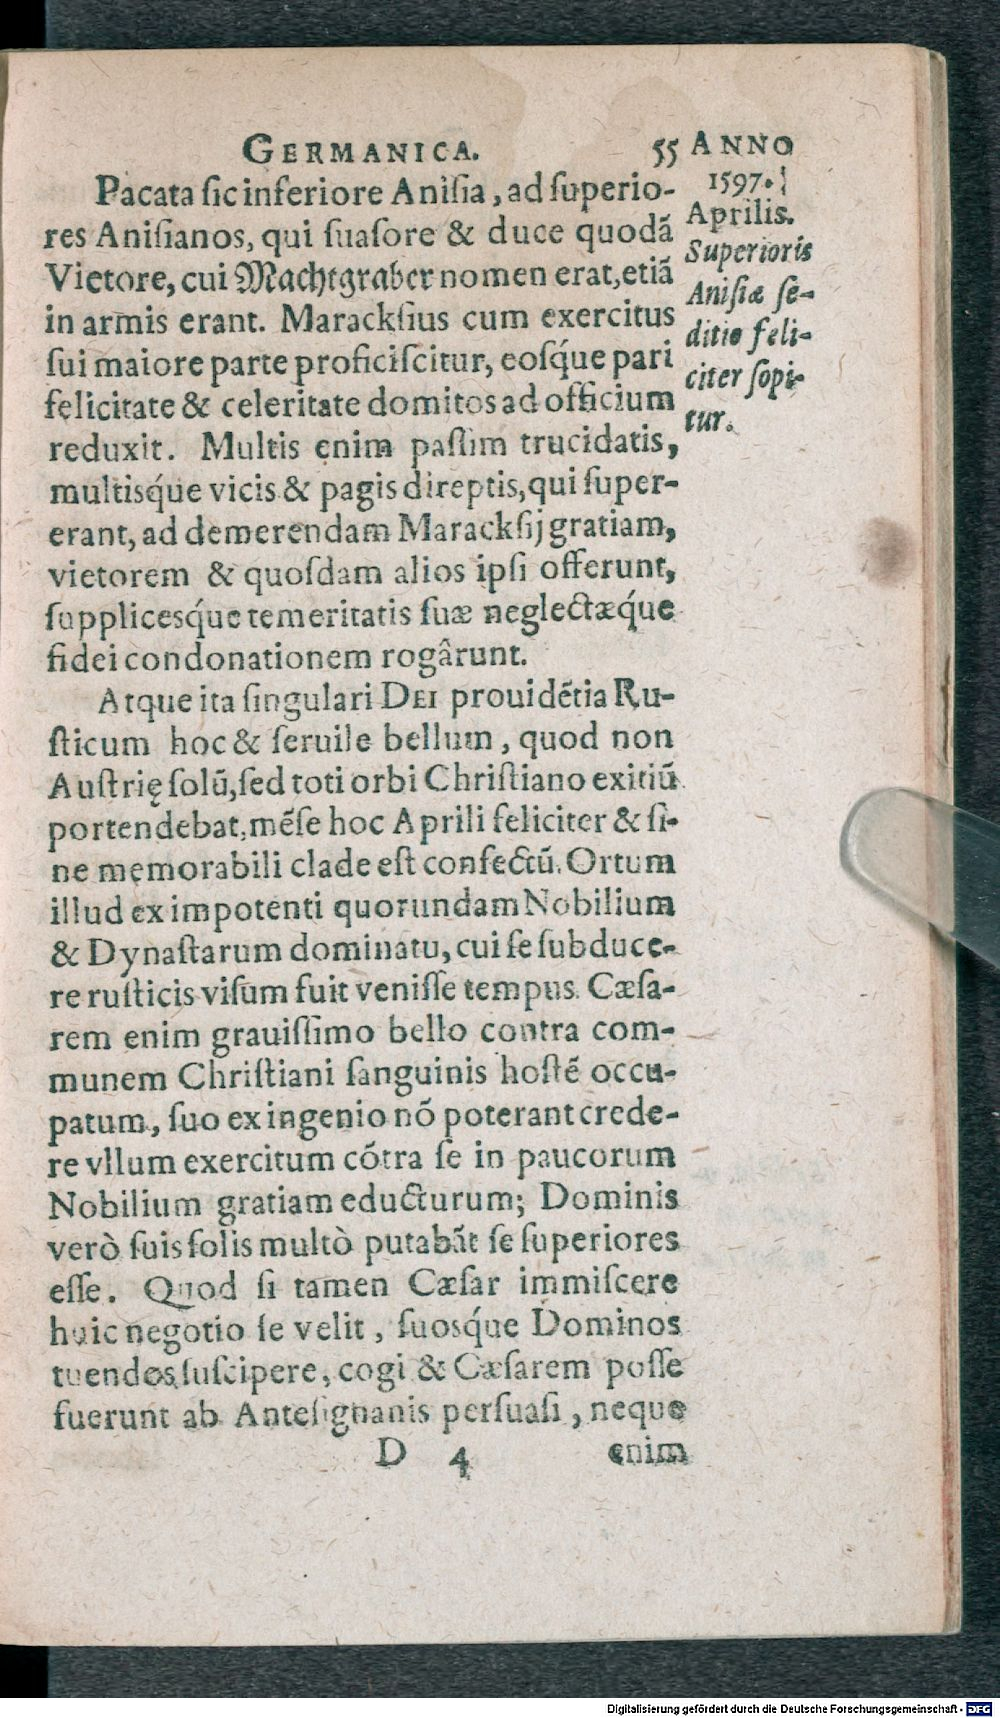 GERMANICA. 55 ANNO
1597.
Aprilis.
Superioris
Anisiæ se-
ditio feli-
citer sopi-
tur.
Pacata ſic inferiore Aniſia, ad ſuperio-
res Aniſianos, qui ſuaſore & duce quodã
Vietore, cui Machtgraber nomen erat, etiã
in armis erant. Marackſius cum exercitus
ſui maiore parte proficiſcitur, eoſq́ue pari
felicitate & celeritate domitos ad officium
reduxit. Multis enim paſſim trucidatis,
multisq́ue vicis & pagis direptis, qui ſuper-
erant, ad demerendam Marackſij gratiam,
vietorem & quoſdam alios ipſi offerunt,
ſupplicesq́ue temeritatis ſuæ neglectæq́ue
fidei condonationem rogârunt.
Atque ita ſingulari DEI prouidẽtia Ru-
ſticum hoc & ſeruile bellum, quod non
Auſtrię ſolũ, ſed toti orbi Chriſtiano exitiũ
portendebat, mẽſe hoc Aprili feliciter & ſi-
ne memorabili clade eſt confectũ. Ortum
illud ex impotenti quorundam Nobilium
& Dynaſtarum dominatu, cui ſe ſubduce-
re ruſticis viſum fuit veniſſe tempus. Cæſa-
rem enim grauiſſimo bello contra com-
munem Chriſtiani ſanguinis hoſtẽ occu-
patum, ſuo ex ingenio nõ poterant crede-
re vllum exercitum cõtra ſe in paucorum
Nobilium gratiam educturum; Dominis
verò ſuis ſolis multò putabãt ſe ſuperiores
eſſe. Quod ſi tamen Cæſar immiſcere
huic negotio ſe velit, ſuosq́ue Dominos
tuendos ſuſcipere, cogi & Cæſarem poſſe
fuerunt ab Anteſignanis perſuaſi, neque
D 4 enim
Digitalisierung gefördert durch die Deutsche Forschungsgemeinschaft - DFG